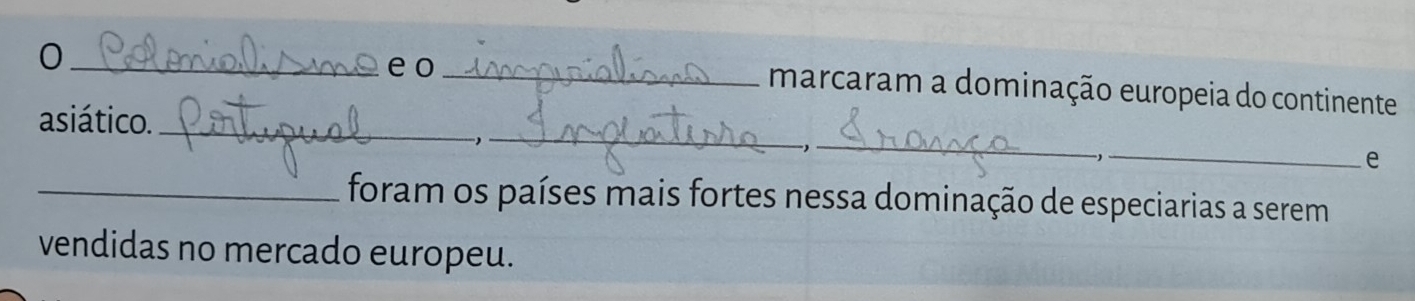 O Colonialismo e o imperialismo marcaram a dominação europeia do continente
asiático. Portugual, Inglaterra, França, e
foram os países mais fortes nessa dominação de especiarias a serem
vendidas no mercado europeu.